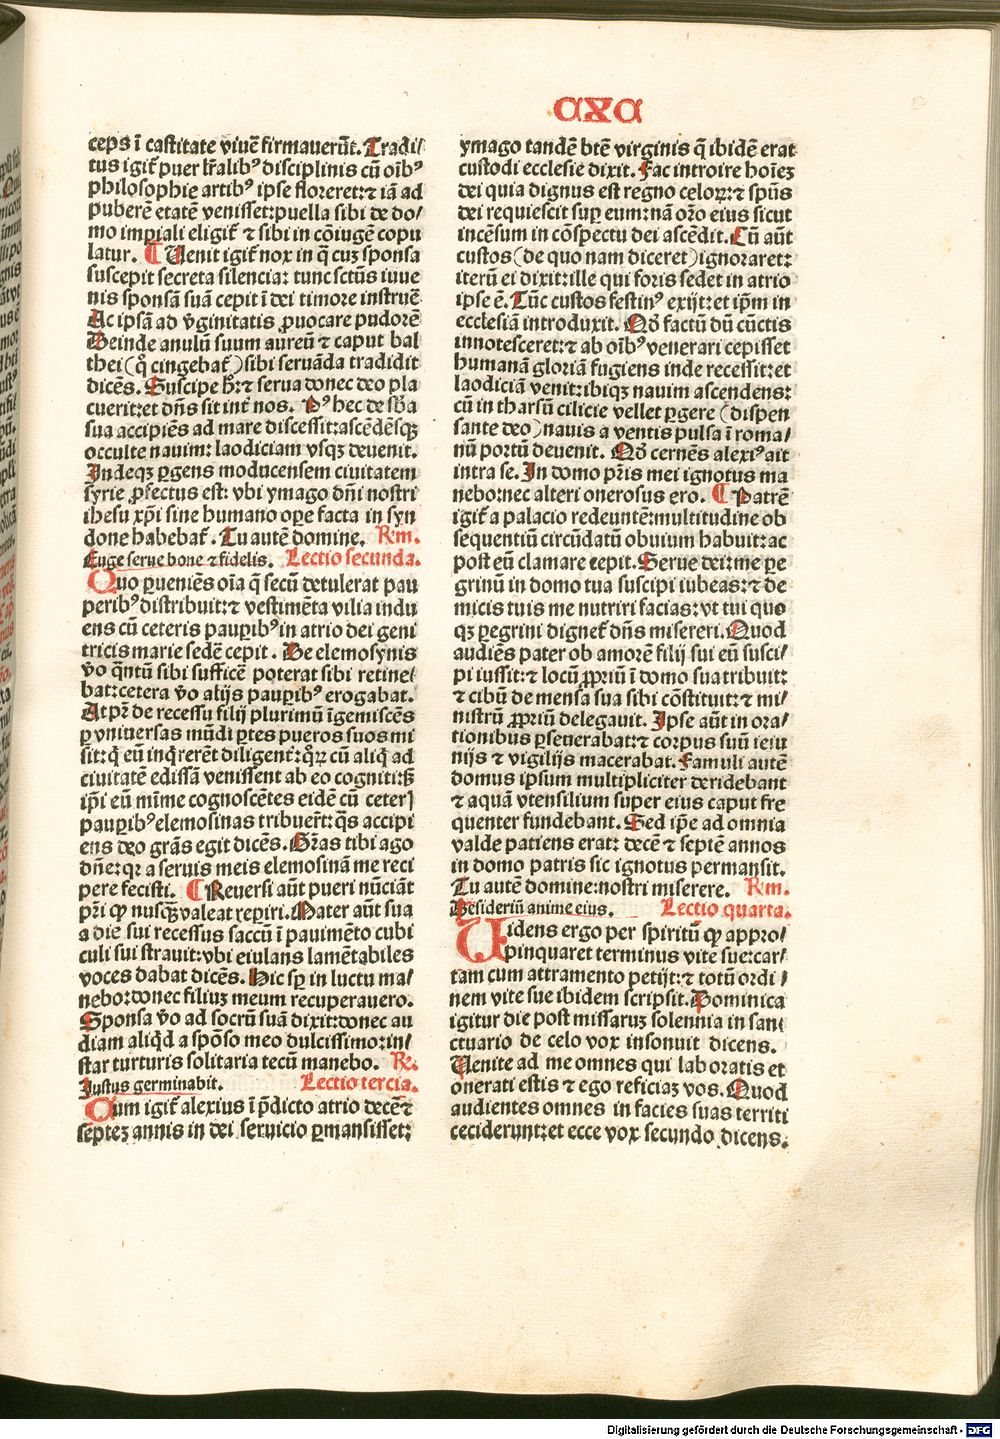 CXC
ceps ī castitate viuē firmauerūt. Tradi/
tus igit᷑ puer lr̄alibꝰ disciplinis cū oībꝰ
philosophie artibꝰ ipse floreret: ⁊ iā ad
puberē etatē venisset: puella sibi de do/
mo imꝑiali eligit᷑ ⁊ sibi in cōiugē copu
latur. ¶ Uenit igit᷑ nox in q̄ cuꝫ sponsa
suscepit secreta silencia: tunc sctūs iuue
nis sponsā suā cepit ī dei timore instruē
Ac ipsā ad v̄ginitatis ꝓuocare pudorē
Deinde anulū suum aureū ⁊ caput bal
thei (q̄ cingebat᷑) sibi seruāda tradidit
dicēs. Suscipe h̄: ⁊ serua donec deo pla
cuerit: et dn̄s sit int̄ nos. Pꝰ hec de sb̄a
sua accipiēs ad mare discessit: ascēdēsqꝫ
occulte nauim: laodiciam vsqꝫ deuenit.
Indeqꝫ ꝑgens moducensem ciuitatem
syrie ꝓfectus est: vbi ymago dn̄i nostri
ihesu xp̄i sine humano oꝑe facta in syn
done habebat᷑. Tu autē domine. Rm.
Euge serue bone ⁊ fidelis. Lectio secunda.
Quo ꝑueniēs oīa q̄ secū detulerat pau
peribꝰ distribuit: ⁊ vestimēta vilia indu
ens cū ceteris pauꝑibꝰ in atrio dei geni
tricis marie sedē cepit. De elemosynis
v̄o qntū sibi sufficē poterat sibi retine/
bat: cetera v̄o alijs pauꝑibꝰ erogabat.
At pr̄ de recessu filij plurimū īgemiscēs
ꝑ vniuersas mūdi ꝑtes pueros suos mi
sit: q̇ eū inq̇rerēt diligent᷑: qꝝ cū aliq̇ ad
ciuitatē edissā venissent ab eo cogniti: sꝫ
ip̄i eū mīme cognoscētes eidē cū ceterꝭ
pauꝑibꝰ elemosinas tribuer̄t: q̄s accipi
ens deo grās egit dicēs. Grās tibi ago
dn̄e: qꝛ a seruis meis elemosinā me reci
pere fecisti. ¶ Reuersi aūt pueri nūciāt
pr̄i ꝙ nusqꝫ valeat reꝑiri. Mater aūt sua
a die sui recessus saccū ī pauimēto cubi
culi sui strauit: vbi eiulans lamētabiles
voces dabat dicēs. Hic sꝑ in luctu ma/
nebo: donec filiuꝫ meum recuperauero.
Sponsa v̄o ad socrū suā dixit: donec au
diam aliqd̄ a spōso meo dulcissimo: in/
star turturis solitaria tecū manebo. R.
Justus germinabit. Lectio tercia.
Cum igit᷑ alexius ī p̄dicto atrio decē ⁊
septeꝫ annis in dei seruicio ꝑmansisset:
ymago tandē btē virginis q̄ ibidē erat
custodi ecclesie dixit. Fac introire hoīeꝫ
dei quia dignus est regno celoꝝ: ⁊ spūs
dei requiescit suꝑ eum: nā or̄o eius sicut
incēsum in cōspectu dei ascēdit. Cū aūt
custos (de quo nam diceret) ignoraret:
iterū ei dixit: ille qui foris sedet in atrio
ipse ē. Tūc custos festinꝰ exijt: et ip̄m in
ecclesiā introduxit. Qd̄ factū dū cūctis
innotesceret: ⁊ ab oībꝰ venerari cepisset
humanā gloriā fugiens inde recessit: et
laodiciā venit: ibiqꝫ nauim ascendens:
cū in tharsū cilicie vellet ꝑgere (dispen
sante deo) nauis a ventis pulsa ī roma/
nū portū deuenit. Qd̄ cernēs alexiꝰ ait
intra se. In domo pr̄is mei ignotus ma
nebo: nec alteri onerosus ero. ¶ Patrē
igit᷑ a palacio redeuntē: multitudine ob
sequentiū circūdatū obuium habuit: ac
post eū clamare cepit. Serue dei: me ꝑe
grinū in domo tua suscipi iubeas: ⁊ de
micis tuis me nutriri facias: vt tui quo
qꝫ ꝑegrini dignet᷑ dn̄s misereri. Quod
audiēs pater ob amorē filij sui eū susci/
pi iussit: ⁊ locū ꝓpriū ī domo sua tribuit:
⁊ cibū de mensa sua sibi cōstituit: ⁊ mi/
nistrū ꝓpriū delegauit. Ipse aūt in ora/
tionibus ꝑseuerabat: ⁊ corpus suū ieiu
nijs ⁊ vigilijs macerabat. Famuli autē
domus ipsum multipliciter deridebant
⁊ aquā vtensilium super eius caput fre
quenter fundebant. Sed ip̄e ad omnia
valde patiens erat: decē ⁊ septē annos
in domo patris sic ignotus permansit.
Tu autē domine: nostri miserere. Rm.
Desideriū anime eius. Lectio quarta.
Uidens ergo per spiritū ꝙ appro/
pinquaret terminus vite sue: car/
tam cum attramento petijt: ⁊ totū ordi/
nem vite sue ibidem scripsit. Dominica
igitur die post missaruꝫ solennia in san
ctuario de celo vox insonuit dicens.
Uenite ad me omnes qui laboratis et
onerati estis ⁊ ego reficiaꝫ vos. Quod
audientes omnes in facies suas territi
ceciderunt: et ecce vox secundo dicens.
Digitalisierung gefördert durch die Deutsche Forschungsgemeinschaft - DFG